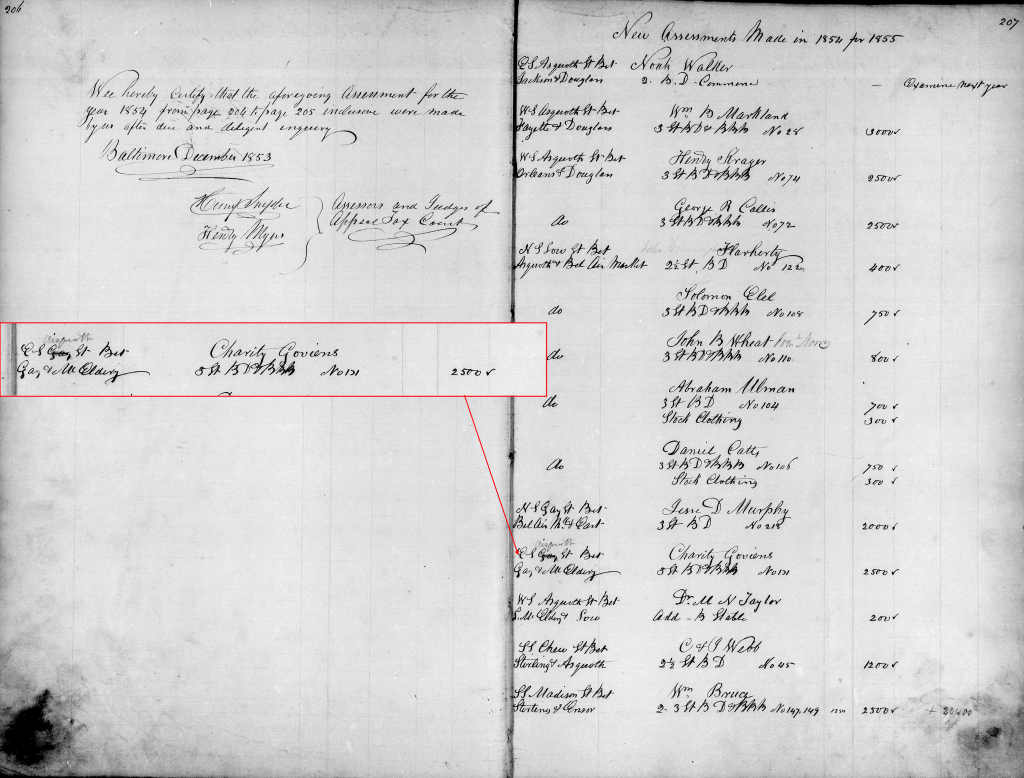 206
Wee hereby Certify that the aforegoing Assessment for the
year 1854 from page 204 to page 205 inclusive were made
by us after due and diligent inquiry
Baltimore December 1853
Henry Snyder
Henry Myers
Assessors and Judges of
Appeal Tax Court
aisquith
E S Gay St Bet Charity Goviens
Gay & McElderry 3 St B D & B BB No 131 2500
207
New Assessments Made in 1854 for 1855
E S Asquoth St Bet Noah Walker
Jackson & Douglass 2. B. D. Commence — Examine next year
W S Asquoth St Bet Wm B Markland
Fayette & Douglass 3 St B D & B BB No 28 3000
W S Asquoth St Bet Henry Krager
Orleans & Douglass 3 St B D & B BB No 74 2500
George R Callis
do 3 St B D & B BB No 72 2500
N S Low St Bet Flarherty
Asquoth & Bel Air Market 2½ St. B D No 122 400
Solomon Elel
do 3 St B D & B BB No 108 750
John B Wheat
do 3 St B D & B BB No 110 800
Abraham Ulman
do 3 St B D No 104 700
Stock Clothing 300
Daniel Catts
do 3 St B D & B BB No 106 750
Stock Clothing 300
N S Gay St Bet Jesse D Murphy
Bel Air Mkt & East 3 St B D No 218 2000
aisquith
E S Gay St Bet Charity Goviens
Gay & McElderry 3 St B D & B BB No 131 2500
W S Asquoth St Bet Dr M N Taylor
McEldery & Low Add - B Stable 200
S S Chew St Bet C & J Webb
Sterling & Asquoth 2½ St B D No 45 1200
S S Madison St Bet Wm Bruce
& Ensor 2. 3 St B D & B BB No 147, 149 1250 2500 + 20400